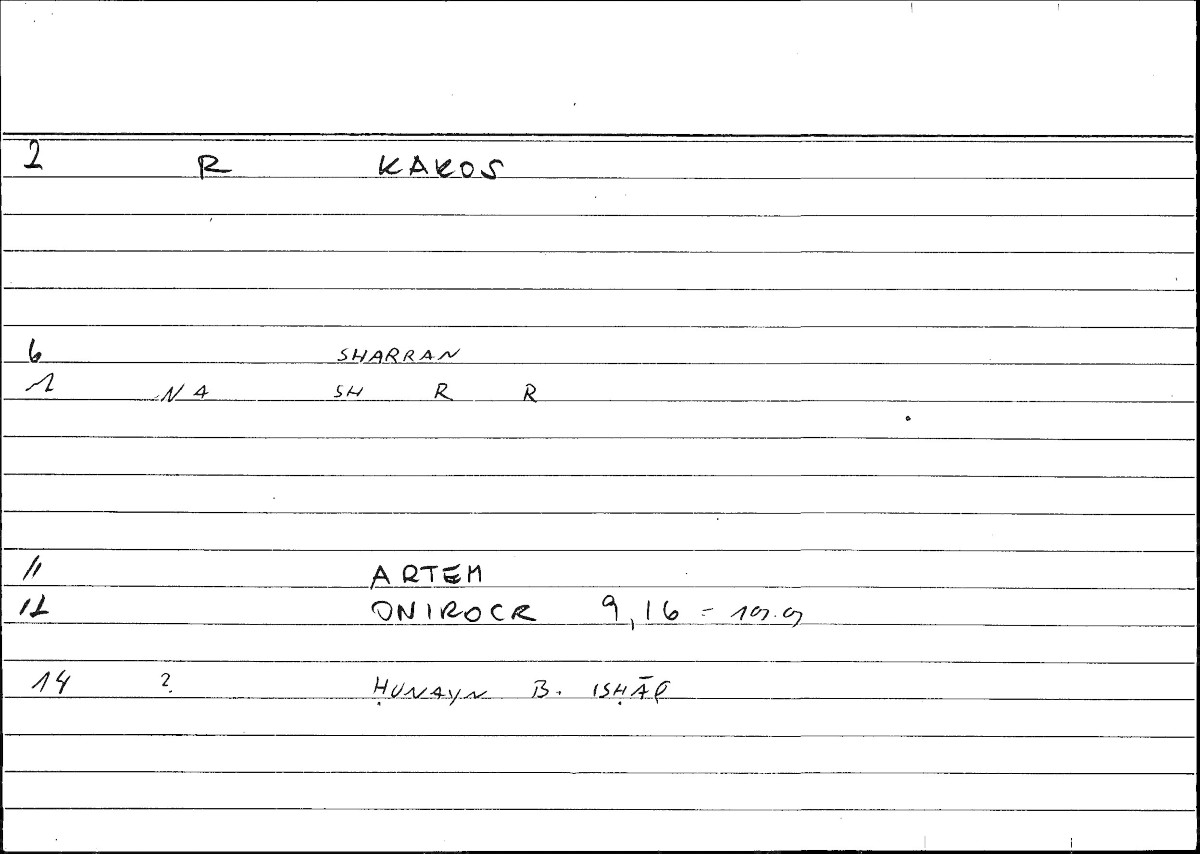 2 R KAKOS
6 SHARRAN
1 NA SH R R
11 ARTEM
12 ONIROCR 9,16 = 19.9
14 ? ḤUNAYN B. ISḤĀQ